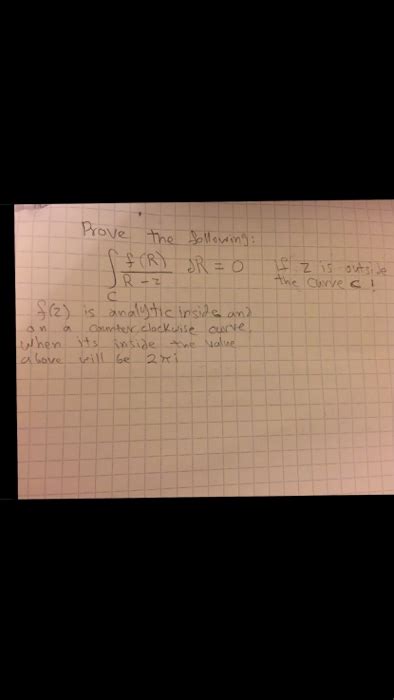 Prove the following:
∫ f(R) / R-z dR = 0 if z is outside
C the curve c!
f(z) is analytic inside and
on a counter clockwise curve.
when its inside the value
above will be 2πi